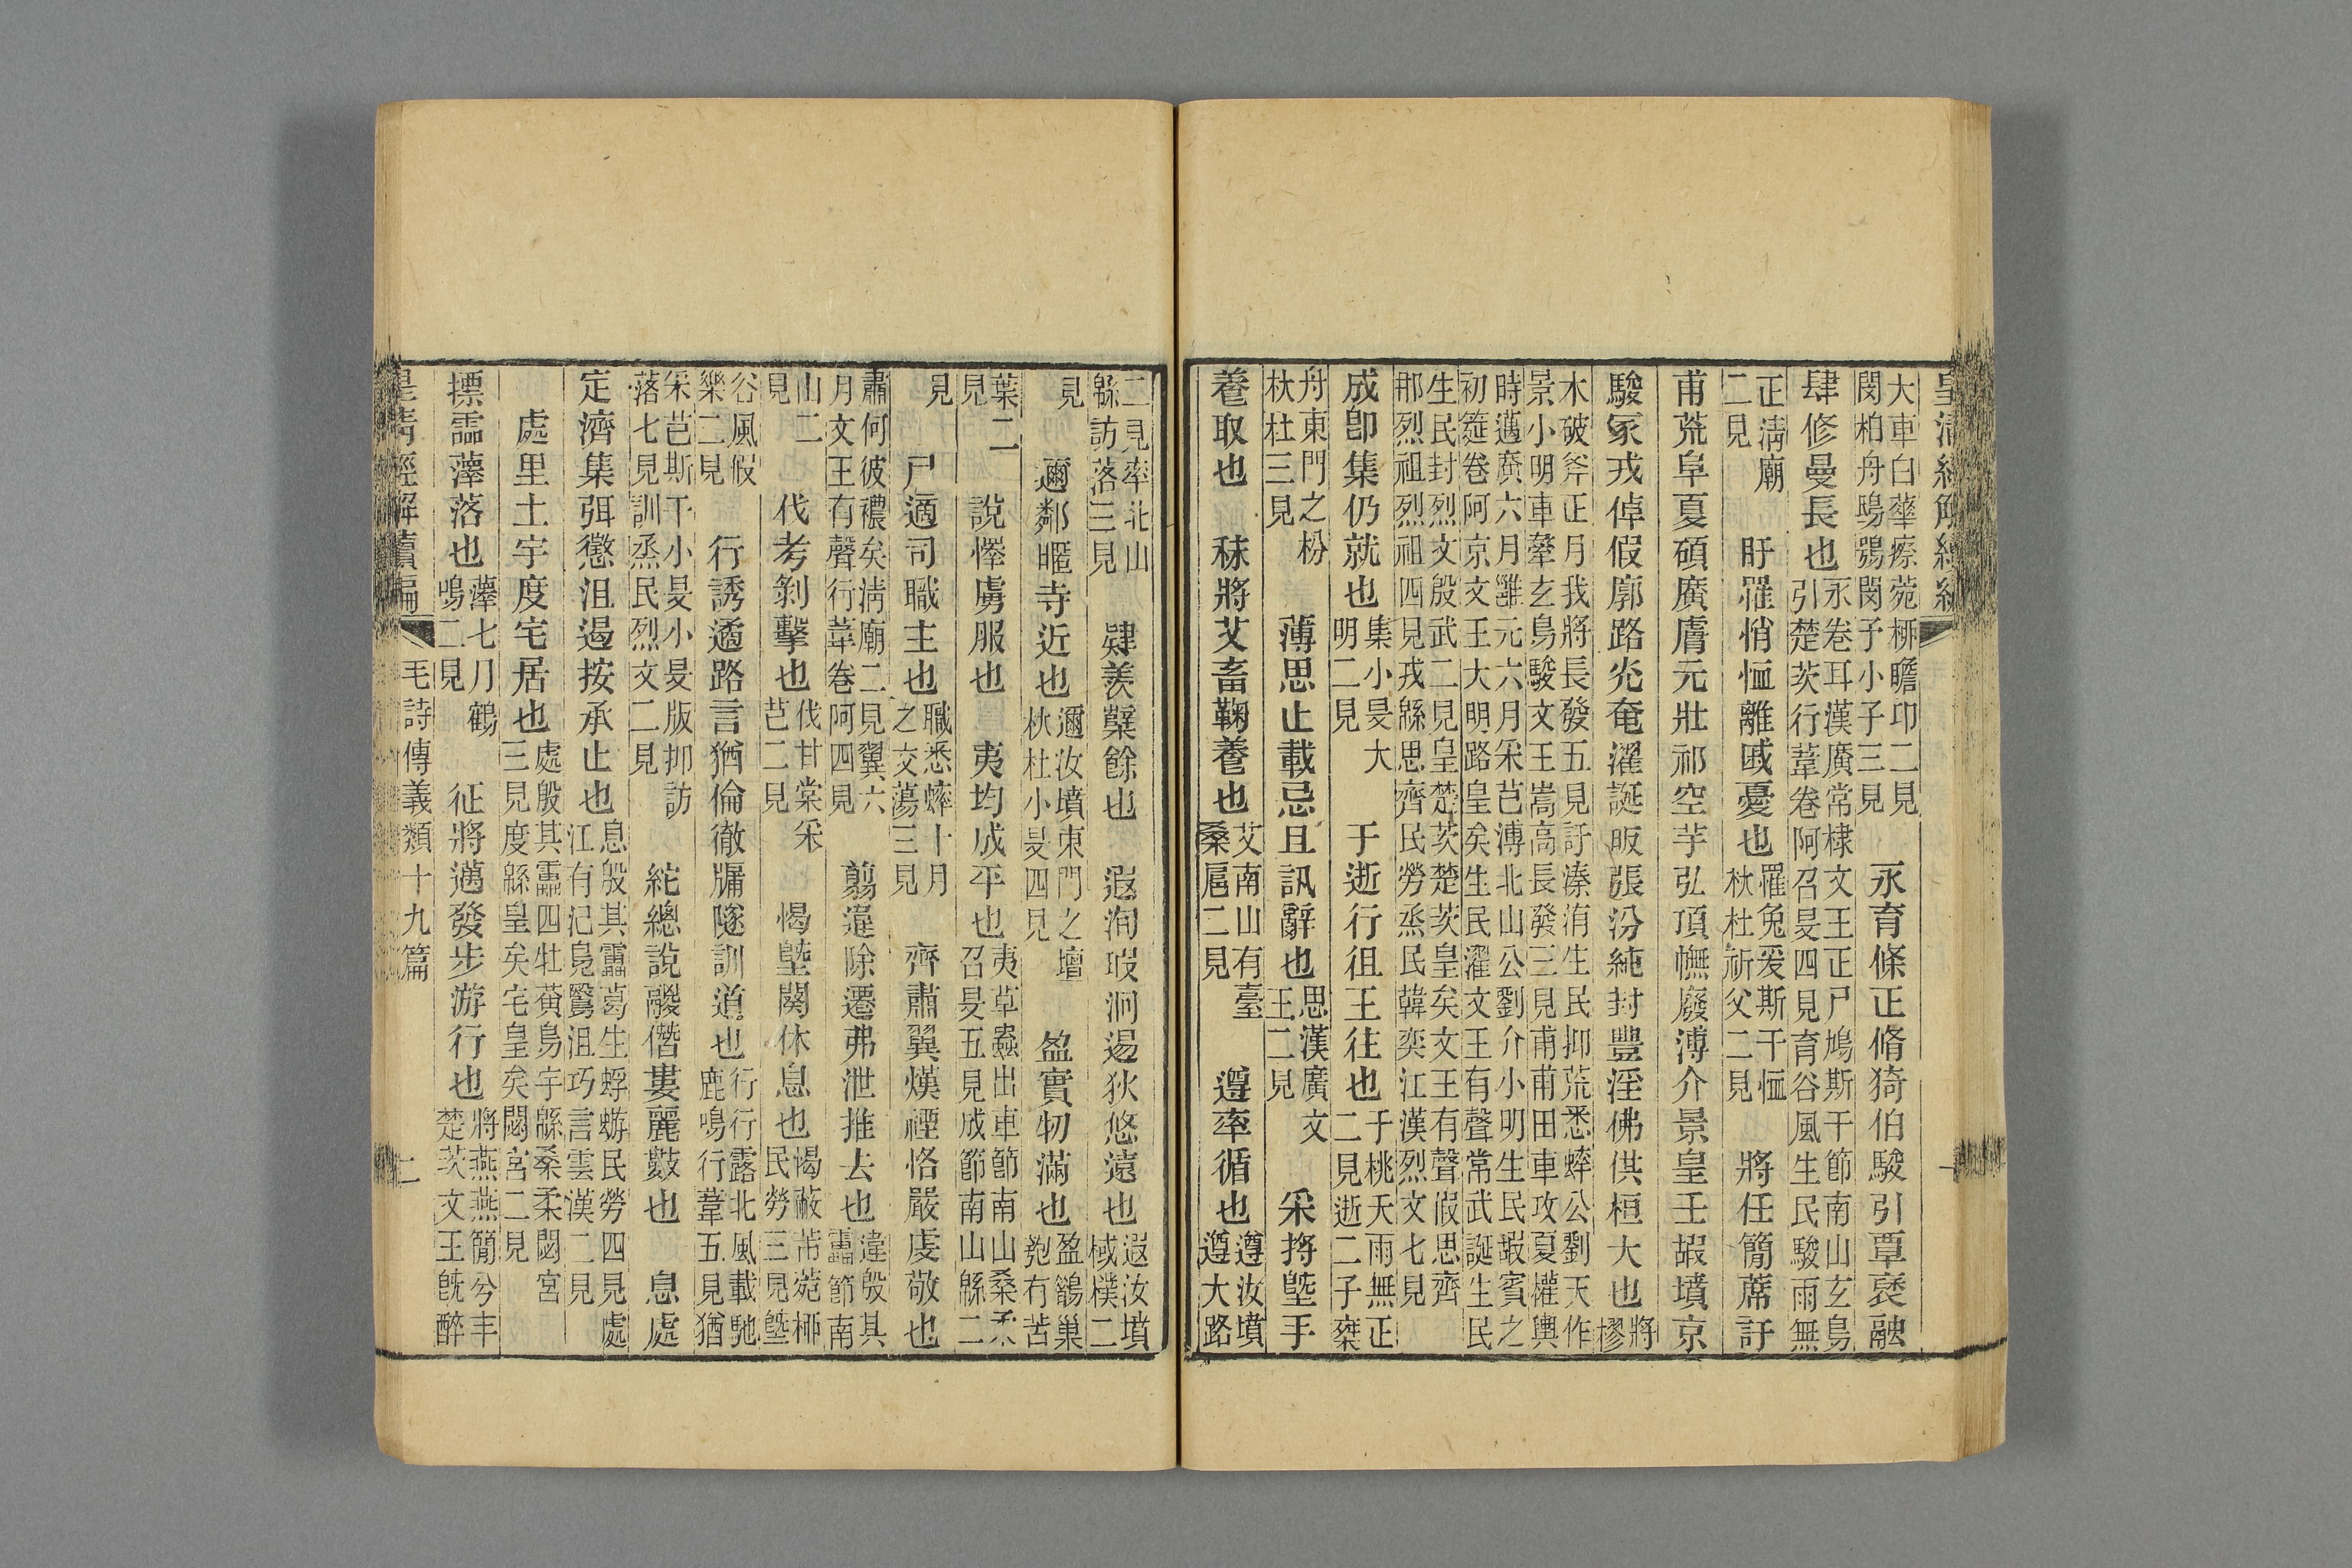 大車白華瘵菀栁瞻卬二見
閔柏舟鴟鴞閔子小子三見
永育條正脩猗伯駿引覃襃融
肆修曼長也
永卷耳漢廣常棣文王正尸鳩斯干節南山玄鳥
引楚茨行葦卷阿召旻四見育谷風生民駿雨無
正清廟
二見
盱罹悄恤離戚憂也
罹兔爰斯干恤
杕杜祈父二見
將任簡蓆訏
甫荒阜夏碩廣膚元壯祁空芋弘項幠廢溥介景皇壬嘏墳京
駿冢戎倬假廓路光奄濯誕昄張汾純封豐淫佛供桓大也
將
樛
木破斧正月我將長發五見訏溱洧生民抑荒悉蟀公劉天作
景小明車舝玄鳥駿文王嵩高長發三見甫甫田車攻夏權輿
時邁廣六月雝元六月采芑溥北山公劉介小明生民嘏賓之
初筵卷阿京文王大明路皇矣生民濯文王有聲常武誕生民
生民封烈文殷武二見皇楚茨楚茨皇矣文王有聲假思齊
那烈祖烈烈祖四見戎緜思齊民勞烝民韓奕江漢烈文七見
成卽集仍就也
集小旻大
明二見
于逝行徂王往也
于桃夭雨無正
二見逝二子椉
舟東門之枌
杕杜三見
薄思止載忌且訊辭也
思漢廣文
王二見
采捋塈手
養取也
秣將艾畜鞠養也
艾南山有臺
桑扈二見
遵率循也
遵汝墳
遵大路
二見率北山
緜訪落三見
肄羨櫱餘也
遐洵瑕泂逷狄悠遠也
遐汝墳
棫樸二
見
邇鄰暱寺近也
邇汝墳東門之墠
杕杜小旻四見
盈實牣滿也
盈鵲巢
匏有苦
葉二
見
說懌虜服也
夷均成平也
夷草蟲出車節南山桑柔
召旻五見成節南山緜二
見
尸適司職主也
職悉蟀十月
之交蕩三見
齊肅翼熯禋恪嚴虔敬也
肅何彼襛矣清廟二見翼六
月文王有聲行葦卷阿四見
翦違除遷弗泄推去也
違殷其
靁節南
山二
見
伐考剝擊也
伐甘棠采
芑二見
愒塈閡休息也
愒蔽芾菀栁
民勞三見塈
谷風假
樂二見
行誘遹路言猶倫徹牖隧訓道也
行行露北風載馳
鹿鳴行葦五見猶
采芑斯干小旻小旻版抑訪
落七見訓烝民烈文二見
紽總說鬷僭蔞麗數也
息處
定濟集弭懲沮遏按承止也
息殷其靁葛生蜉蝣民勞四見處
江有汜鳧鷖沮巧言雲漢二見
處里土宇度宅居也
處殷其靁四牡黃鳥宇緜桑柔閟宮
三見度緜皇矣宅皇矣閟宮二見
摽霝蘀落也
蘀七月鶴
鳴二見
征將邁發步游行也
將燕燕簡兮丰
楚茨文王旣醉
皇清經解續編
毛詩傳義類十九篇
二